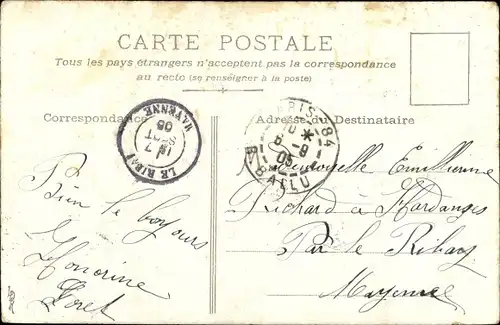 CARTE POSTALE
Tous les pays étrangers n'acceptent pas la correspondance
au recto (se renseigner à la poste)
Correspondance
Adresse du Destinataire
LE RIBAY
7
SEPT
05
MAYENNE
PARIS 84
6 - 9
05
R. BALLU
Bien le bonjours
Honorine
Loret
Mademoiselle Emilienne
Richard à St Hardanges
Par le Ribay
Mayenne